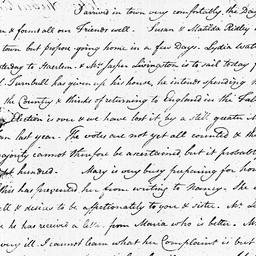 I arrived in town very comfortably, the Day
& found all our Friends well. Susan & Matilda Ridley a
town but propose going home in a few Days. Lydia Wat
sterday to Haerlem. & Mrs Jasper Livingston is to sail today f
l. Turnbull has given up his house, he intends spending t
the Country & thinks of returning to England in the Fal
Election is over & we have lost it by a still greater
rn last year. The votes are not yet all counted & th
ajority cannot therefore be ascertained but it probabl
ght hundred. Mary is very busy preparing for hou
this has prevented her from writing to Nancy. She
ell & desires to be affectionately to you & sister. Mr
e he has received a letter from Maria who is better. M
very ill. I cannot learn what her Complaint is but